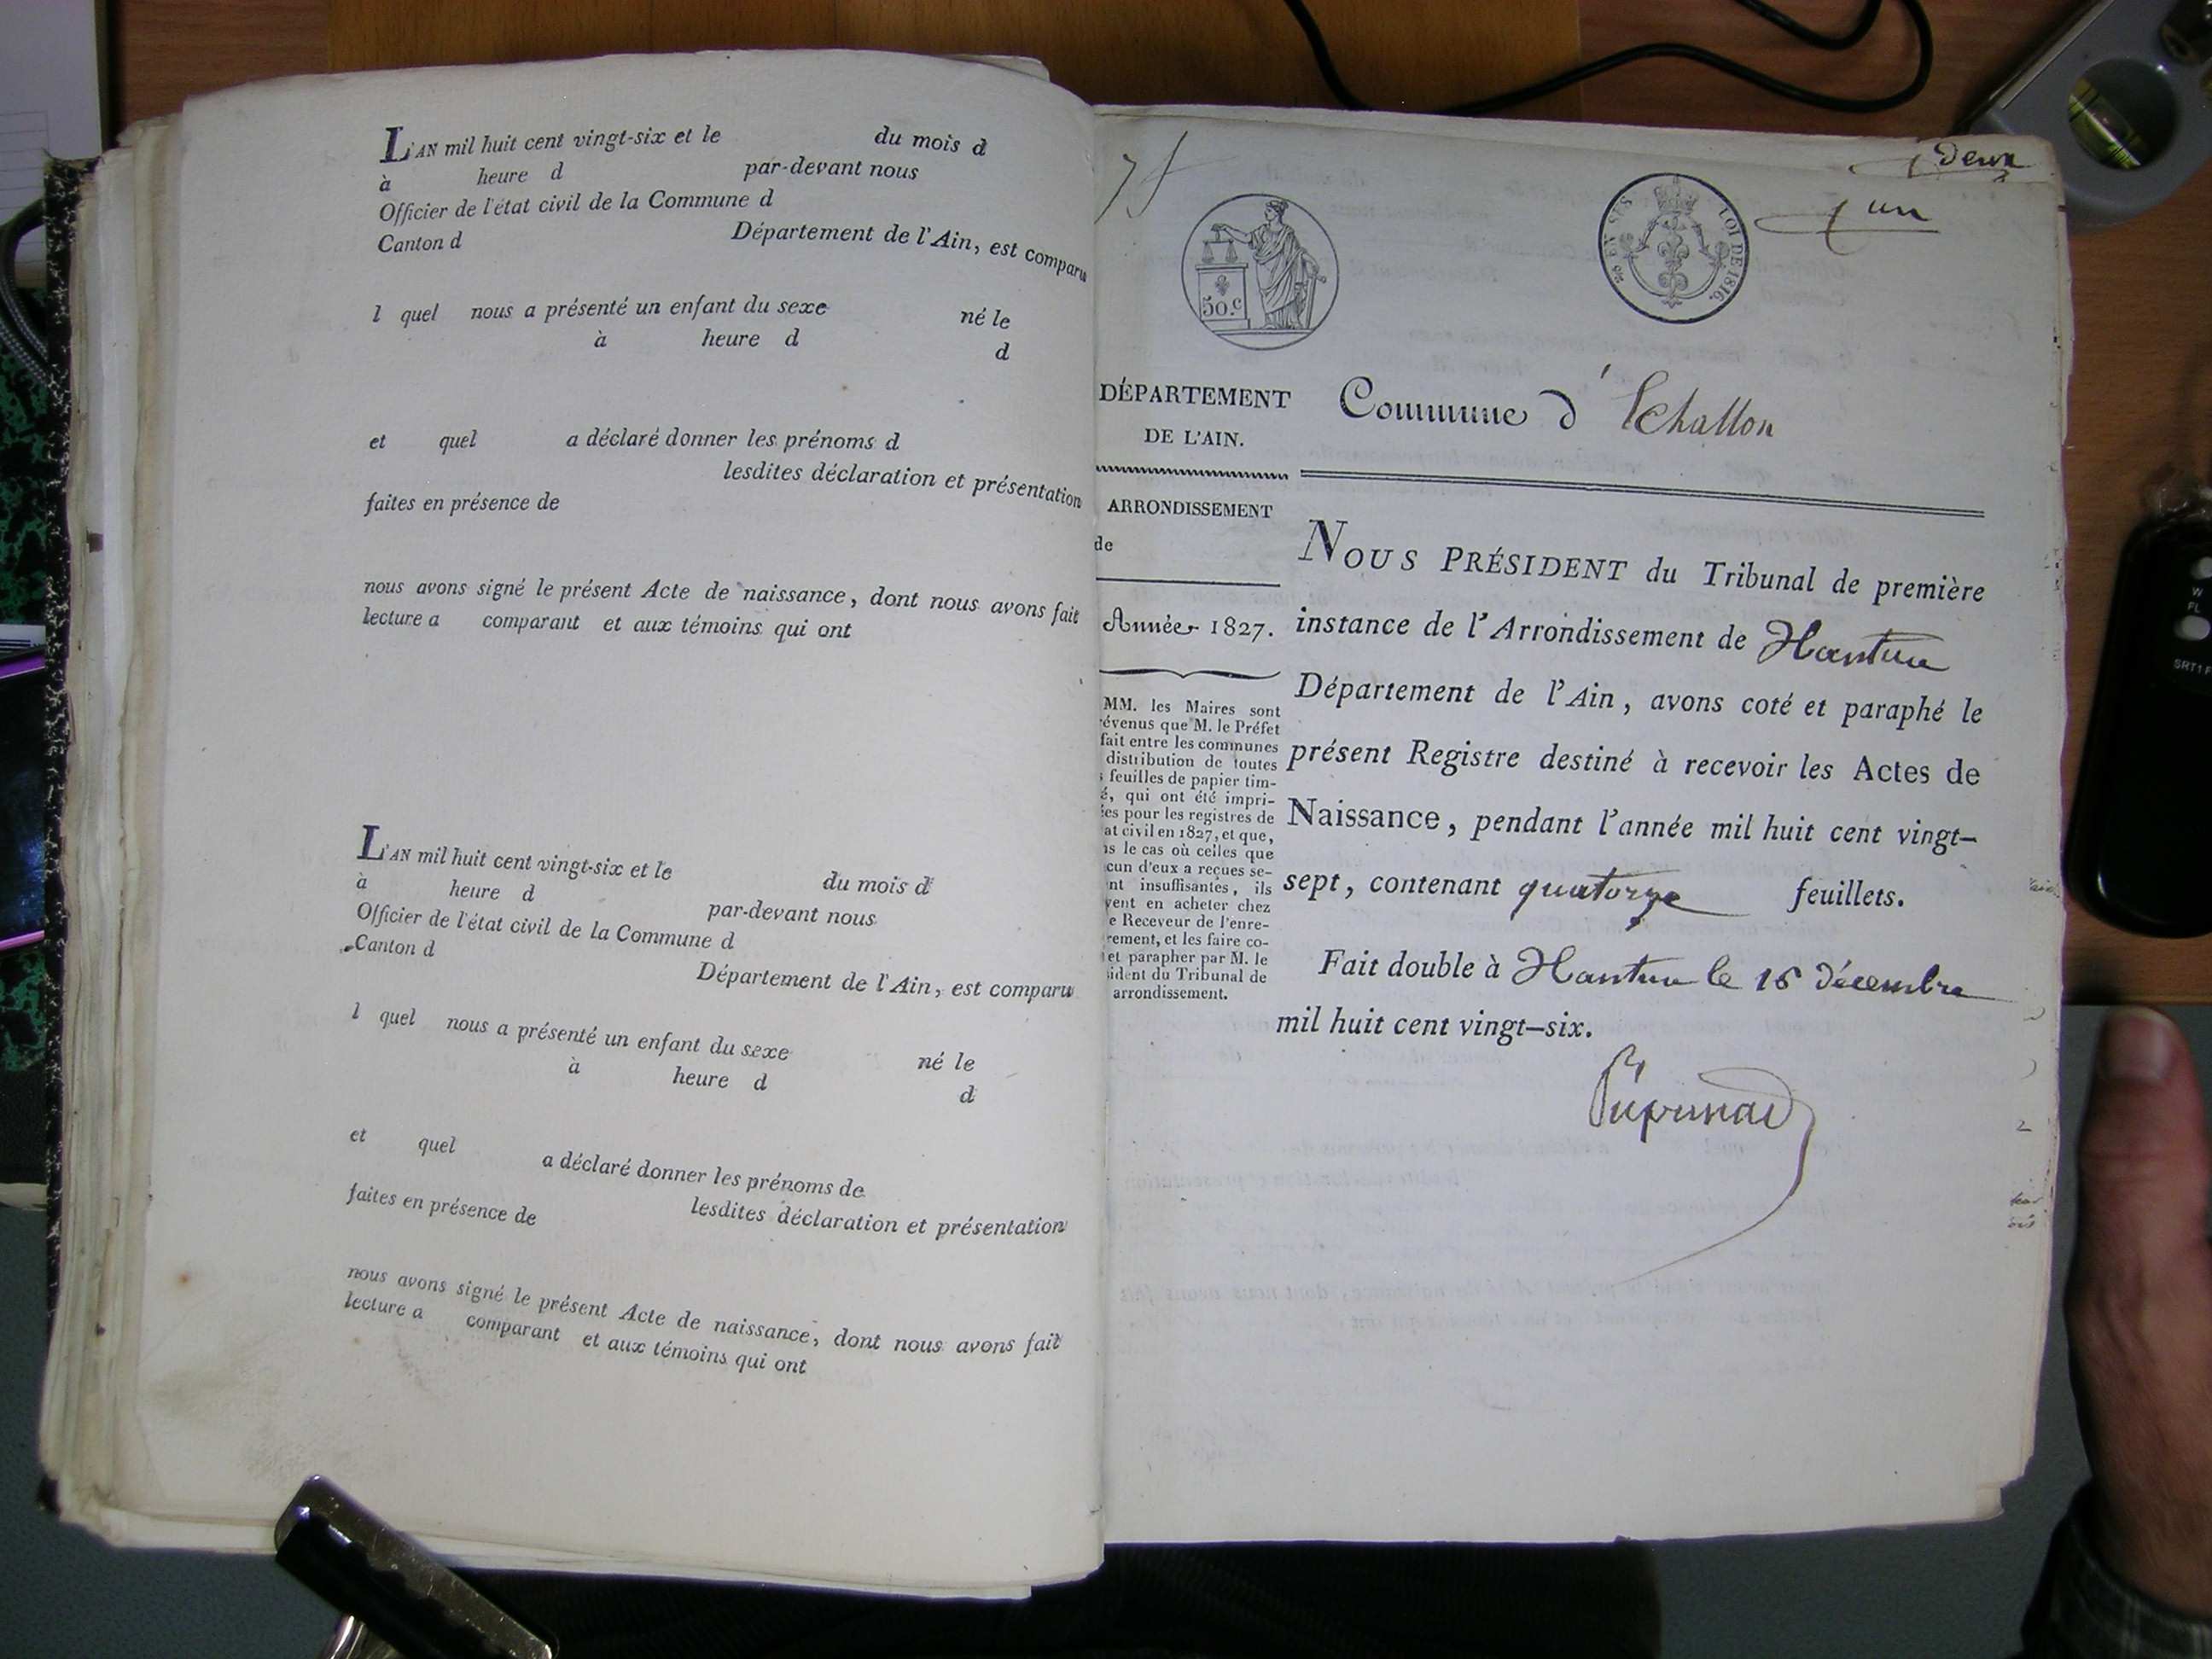 L'AN mil huit cent vingt-six et le du mois d
à heure d par-devant nous
Officier de l'état civil de la Commune d
Canton d Département de l'Ain, est comparu
l quel nous a présenté un enfant du sexe né le
à heure d d
et quel a déclaré donner les prénoms d
lesdites déclaration et présentation
faites en présence de
nous avons signé le présent Acte de naissance, dont nous avons fait
lecture a comparant et aux témoins qui ont
L'AN mil huit cent vingt-six et le du mois d
à heure d par-devant nous
Officier de l'état civil de la Commune d
Canton d Département de l'Ain, est comparu
l quel nous a présenté un enfant du sexe né le
à heure d d
et quel a déclaré donner les prénoms de
lesdites déclaration et présentation
faites en présence de
nous avons signé le présent Acte de naissance, dont nous avons fait
lecture a comparant et aux témoins qui ont
deux
un
50.c
LOI DE 1816.
DÉPARTEMENT
DE L'AIN.
Commune d'Echallon
ARRONDISSEMENT
de
Année 1827.
MM. les Maires sont
évenus que M. le Préfet
fait entre les communes
distribution de toutes
s feuilles de papier tim-
é, qui ont été impri-
ées pour les registres de
at civil en 1827, et que,
ns le cas où celles que
cun d'eux a reçues se-
nt insuffisantes, ils
vent en acheter chez
e Receveur de l'enre-
rement, et les faire co-
et parapher par M. le
sident du Tribunal de
arrondissement.
NOUS PRÉSIDENT du Tribunal de première
instance de l'Arrondissement de Nantua
Département de l'Ain, avons coté et paraphé le
présent Registre destiné à recevoir les Actes de
Naissance, pendant l'année mil huit cent vingt-
sept, contenant quatorze feuillets.
Fait double à Nantua le 16 décembre
mil huit cent vingt-six.